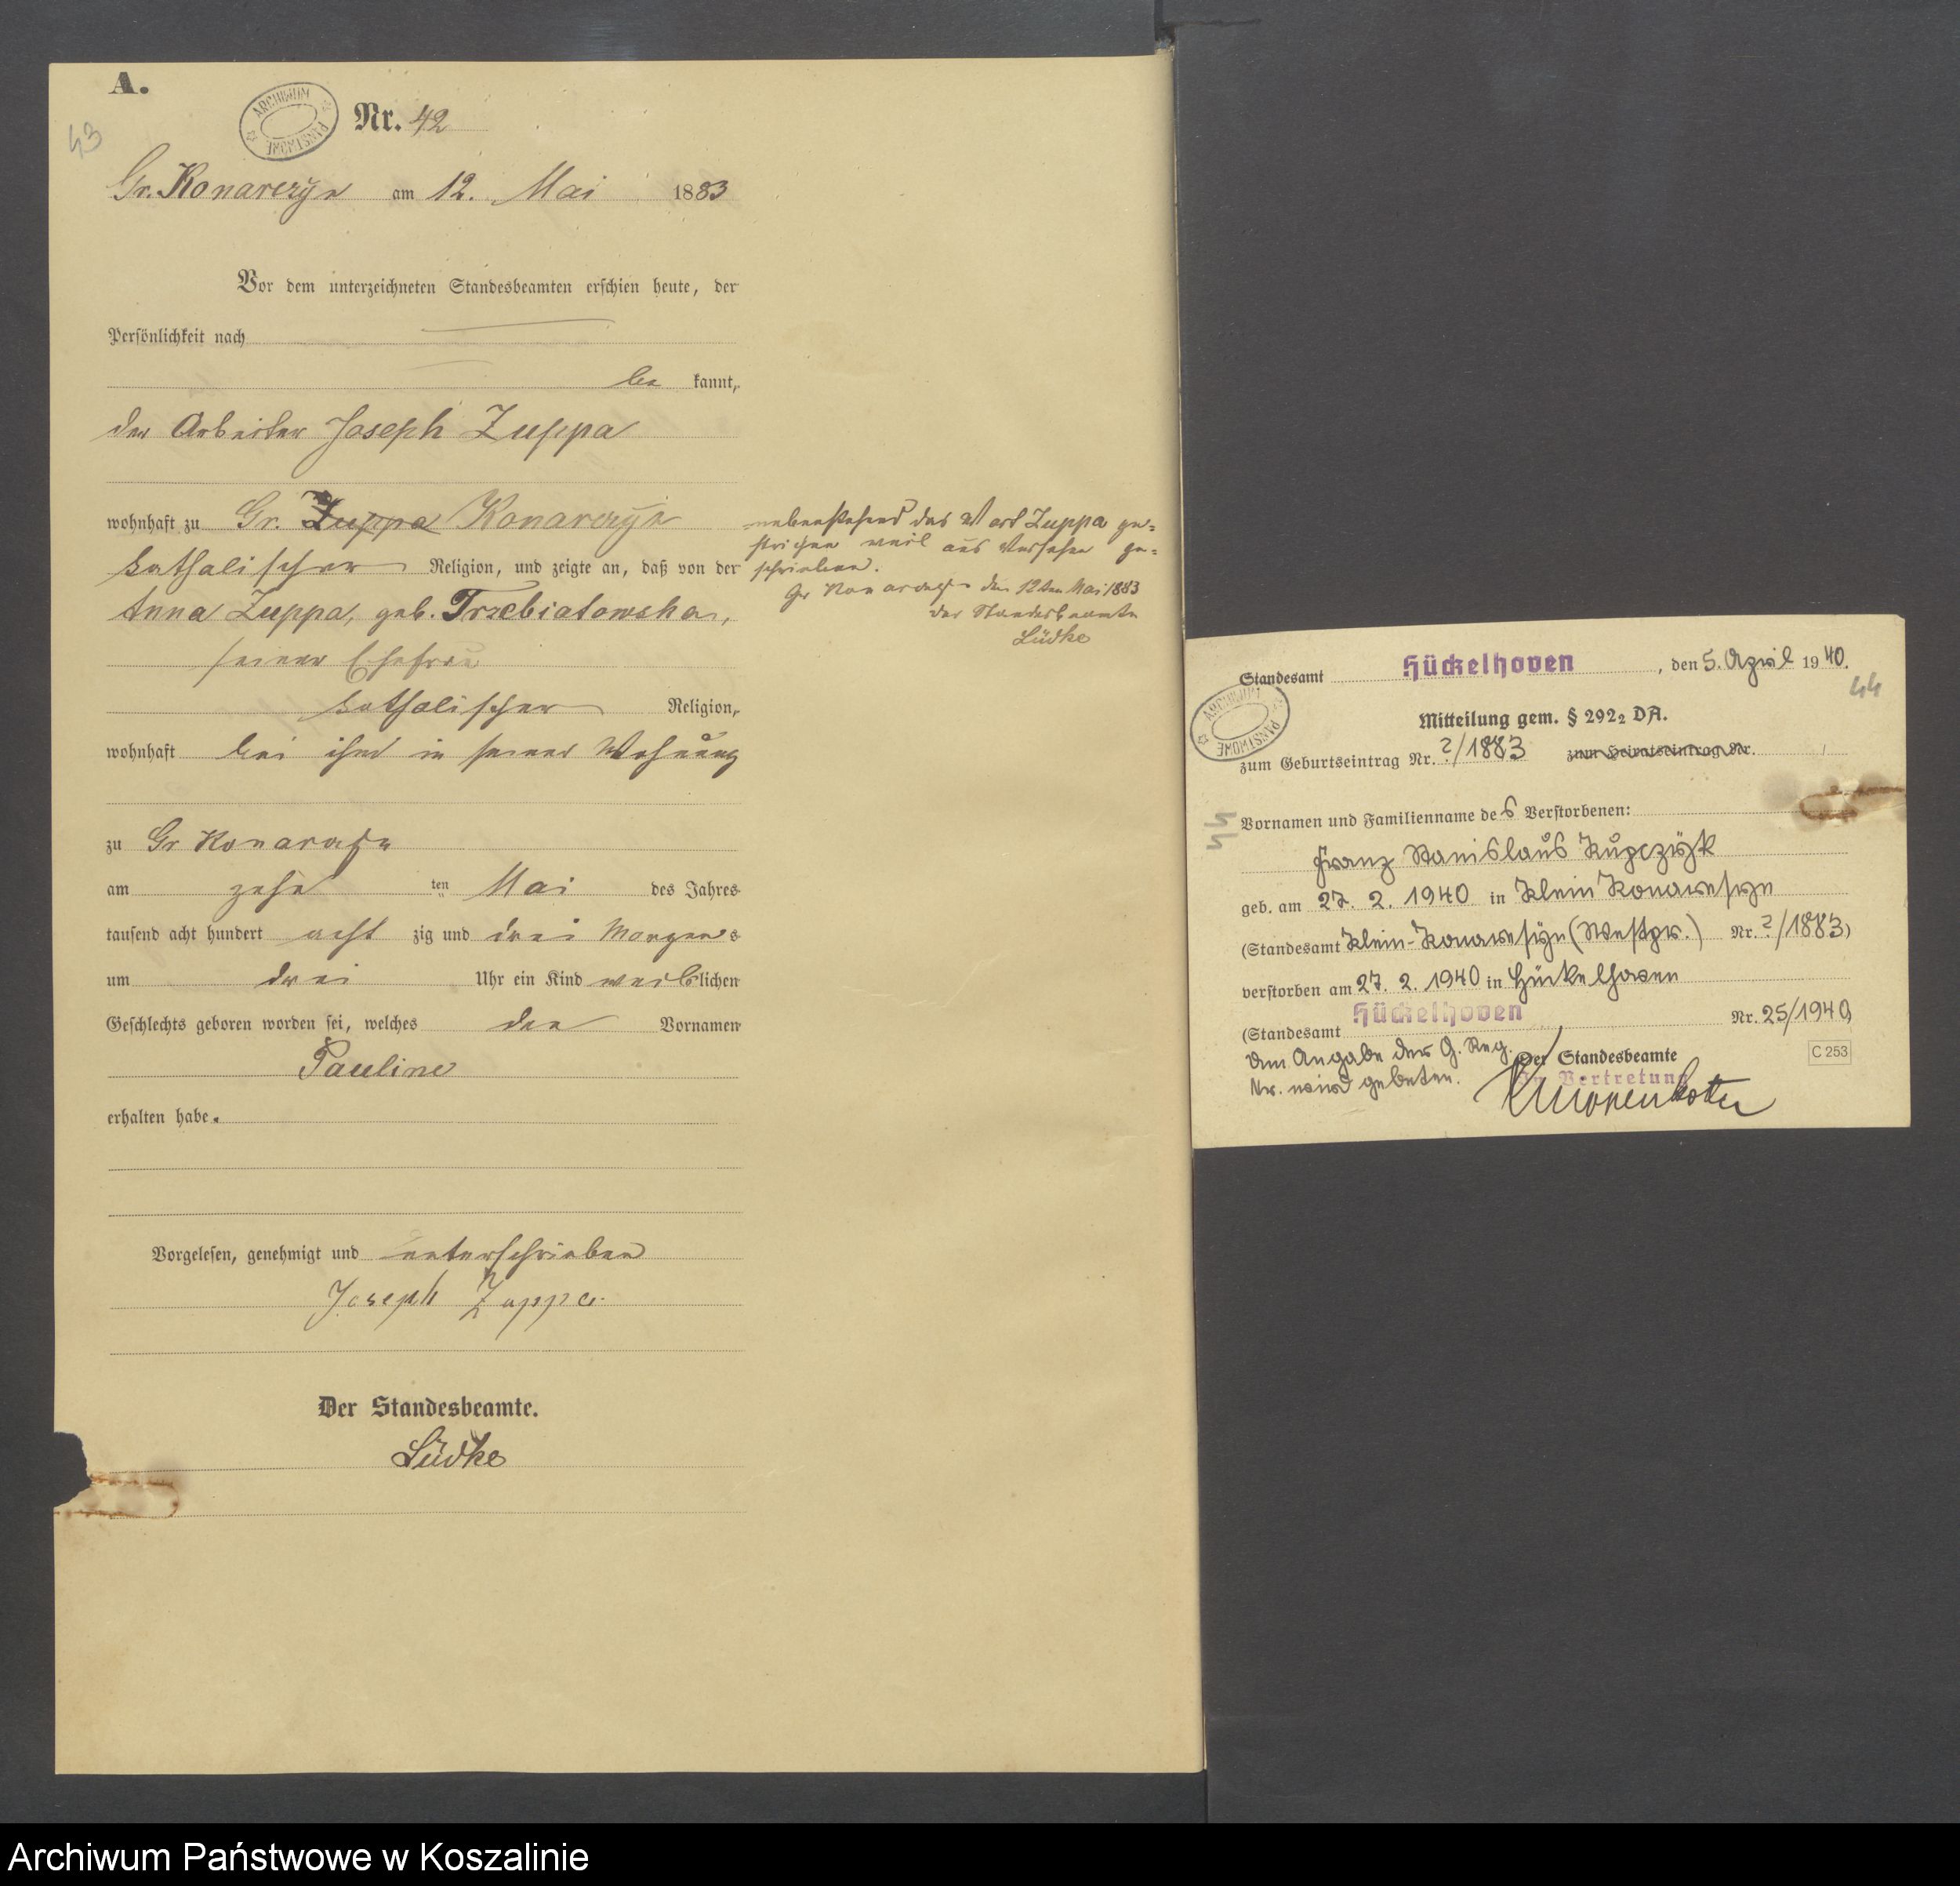 A.
ARCHIWUM PAŃSTWOWE
Nr. 42
43
Gr. Konarczyn am 12. Mai 1883
Vor dem unterzeichneten Standesbeamten erschien heute, der
Persönlichkeit nach
be kannt,
der Arbeiter Joseph Zuppa
wohnhaft zu Gr. Zuppa Konarczyn
katholischer Religion, und zeigte an, daß von der
Anna Zuppa, geb. Trzebiatowska,
seiner Ehefrau
katholischer Religion,
wohnhaft bei ihm in seiner Wohnung
zu Gr Konarczyn
am zehn ten Mai des Jahres
tausend acht hundert acht zig und drei Morgens
um drei Uhr ein Kind weiblichen
Geschlechts geboren worden sei, welches den Vornamen
Pauline
erhalten habe.
Vorgelesen, genehmigt und unterschrieben
Joseph Zuppa
Der Standesbeamte.
Lüdke
nebenstehend das Wort Zuppa ge=
strichen weil aus Versehen ge=
schrieben.
Gr Konarczyn den 12ten Mai 1883
Der Standesbeamte
Lüdke
Standesamt Hückelhoven, den 5. April 1940.
44
ARCHIWUM PAŃSTWOWE
Mitteilung gem. § 292₂ DA.
zum Geburtseintrag Nr. ?/1883 zum Heiratseintrag Nr.
Vornamen und Familienname des Verstorbenen:
Franz Stanislaus Kupczyk
geb. am 27. 2. 1940 in Klein Konarczyn
(Standesamt Klein-Konarczyn (Westpr.) Nr. ?/1883)
verstorben am 27. 2. 1940 in Hückelhoven
(Standesamt Hückelhoven Nr. 25/1940)
Um Angabe der G. Reg. Der Standesbeamte
Nr. wird gebeten. In Vertretung
C 253
Archiwum Państwowe w Koszalinie